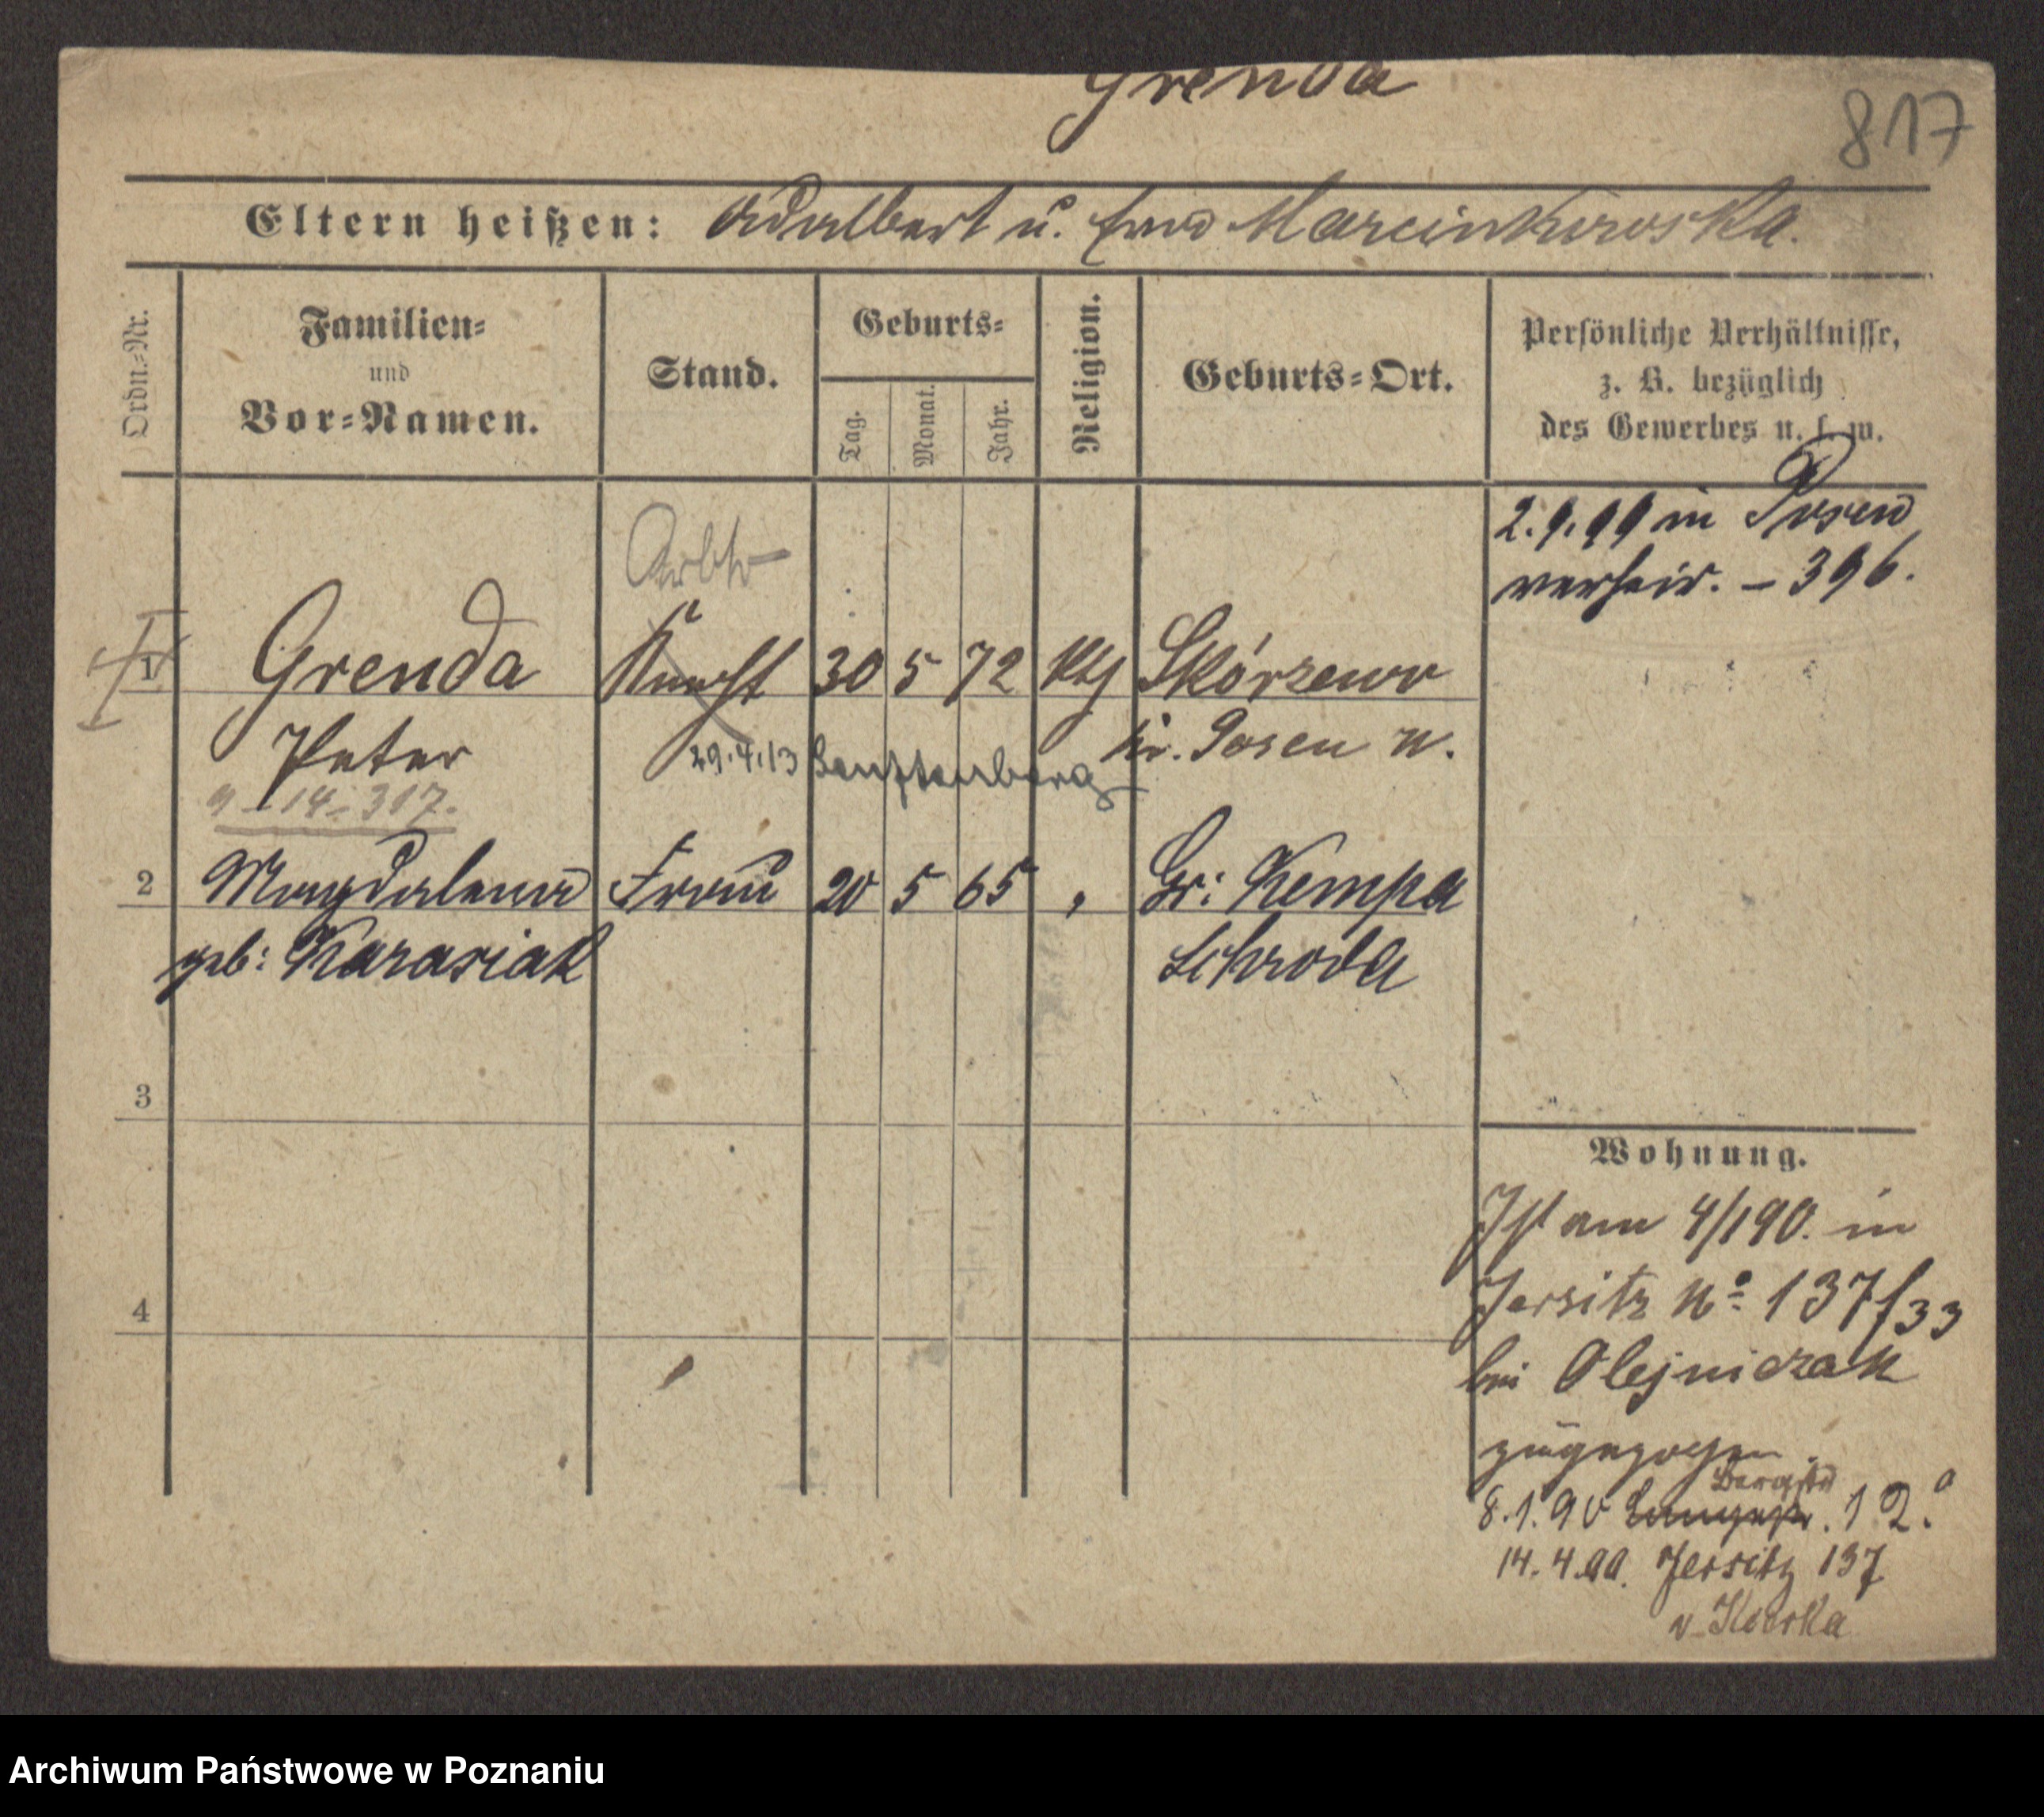 Grenda
817
Eltern heißen: Adalbert u. Eva Marcinkowska.
Ordn.-Nr.
Familien- und Vor-Namen.
Stand.
Geburts-
Tag.
Monat.
Jahr.
Religion.
Geburts-Ort.
Persönliche Verhältnisse,
z. B. bezüglich
des Gewerbes u. s. w.
2.9.99 in Posen
verheir. – 396.
Arbtr
1 Grenda Knecht 30 5 72 kth Skórzewo
Peter Kr. Posen W.
29.4.13 Senftenberg
9–14–317.
2 Magdalena Frau 20 5 65 " Gr: Kempa
geb: Karasiak Schroda
3
4
Wohnung.
Ist am 4/1 90. in
Jersitz No 137/33
bei Olejniczak
zugezogen.
Bergstr
8.1.90 Langestr. 12.a
14.4.90. Jersitz 137
Archiwum Państwowe w Poznaniu